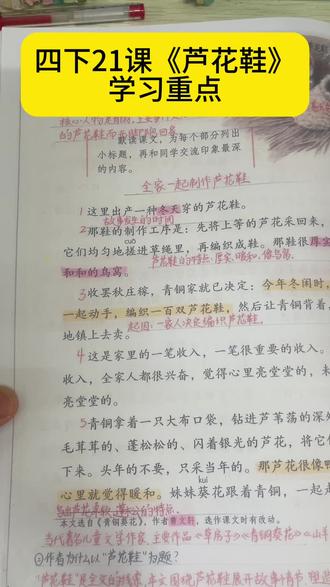 四下21课《芦花鞋》
学习重点
的芦花鞋而
默读课文,为每个部分列出
小标题,再和同学交流印象最深
的内容。
全家一起制作芦花鞋
1这里出产一种冬天穿的芦花鞋。
故事发生的时间
2那鞋的制作工序是:先将上等的芦花采回来,
cuō
它们均匀地搓进草绳里,再编织成鞋。那鞋很厚实
芦花鞋的特点:厚实、暖和、像鸟窝。
和和的鸟窝。
3收罢秋庄稼,青铜家就已决定:今年冬闲时,
一起动手,编织一百双芦花鞋,然后让青铜背着,
起因:一家人决定编织芦花鞋。
地镇上去卖。
4这是家里的一笔收入,一笔很重要的收入。
收入,全家人都很兴奋,觉得心里亮堂堂的,未
亮堂堂的。
5青铜拿着一只大布口袋,钻进芦苇荡的深处
毛茸茸的、蓬松松的、闪着银光的芦花,将它
下来。头年的不要,只采当年的。那芦花很像鸭
kuí
心里就觉得暖和。妹妹葵花跟着青铜,一起
本文选自《青铜葵花》,作者曹文轩,选作课文时有改动。
当代著名儿童文学作家,主要作品《草房子》《青铜葵花》《山羊
①作者为什么以“芦花鞋”为题?